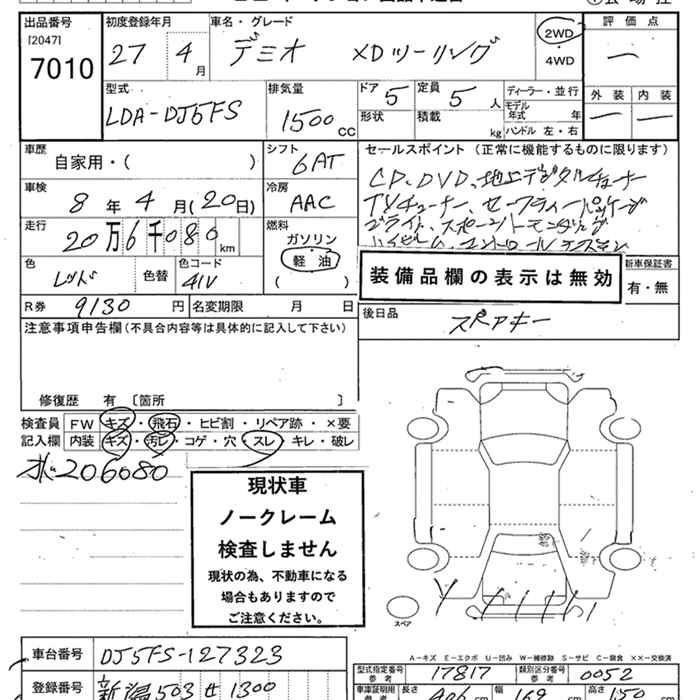 出品番号 初度登録年月 車名・グレード 評価点
[2047] 7010 27 4月 デミオ XDツーリング 2WD 4WD
型式 排気量 ドア 5 定員 5人 ディーラー・並行 外装 内装
LDA-DJ5FS 1500 cc 形状 積載 kg モデル年式 年
ハンドル 左・右
車歴 シフト セールスポイント (正常に機能するものに限ります)
自家用・( ) 6AT
車検 8年 4月 (20日) 冷房 AAC
CD、DVD、地上デジタルチューナー
TVチューナー、セーフティーパッケージ
走行 20万6千080km 燃料 ガソリン 軽油 ( )
色 レッド 色替 色コード 41V
装備品欄の表示は無効 新車保証書 有・無
R券 9130円 名変期限 月 日
後日品 スペアキー
注意事項申告欄 (不具合内容等は具体的に記入して下さい)
修復歴 有 〔箇所 〕
検査員記入欄 FW キズ・飛石・ヒビ割・リペア跡・×要
内装 キズ・汚レ・コゲ・穴・スレ・キレ・破レ
206080
現状車
ノークレーム
検査しません
現状の為、不動車になる
場合もありますので
ご注意ください。
スペア
A－キズ E－エクボ U－凹み W－補修跡 S－サビ C－腐食 ××－交換済
車台番号 DJ5FS-127323
型式指定番号 参考 17817 類別区分番号 参考 0052
登録番号 新潟 503 せ 1300
車庫証明用 参考 長さ 406 cm 幅 169 cm 高さ 150 cm